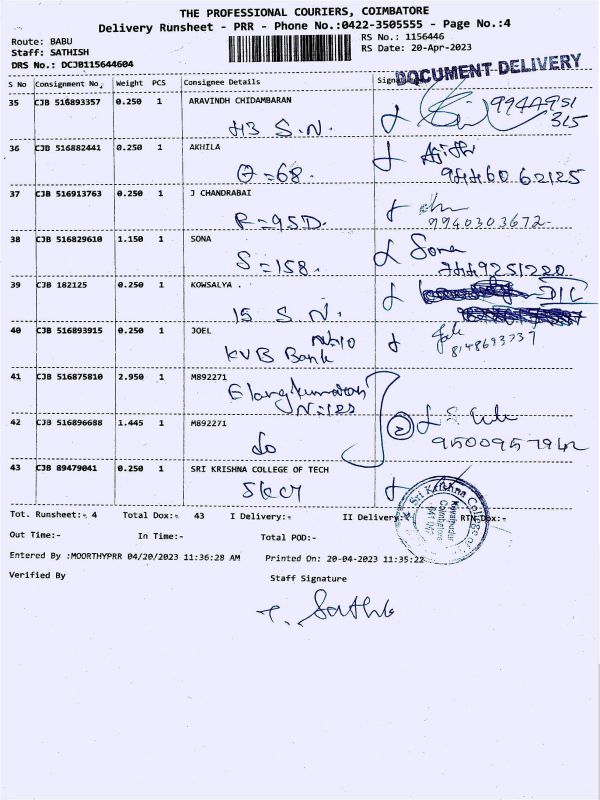 THE PROFESSIONAL COURIERS, COIMBATORE
Delivery Runsheet - PRR - Phone No.:0422-3505555 - Page No.:4
Route: BABU
Staff: SATHISH
DRS No.: DCJB115644604
RS No.: 1156446
RS Date: 20-Apr-2023
DOCUMENT DELIVERY
S No Consignment No. Weight PCS Consignee Details Signature
35 CJB 516893357 0.250 1 ARAVINDH CHIDAMBARAN
43 S.N. 9944951
315
36 CJB 516882441 0.250 1 AKHILA
68. 94460 62125
37 CJB 516913763 0.250 1 J CHANDRABAI
R=95D. 9940303672
38 CJB 516829610 1.150 1 SONA
S=158. Sona
39 CJB 182125 0.250 1 KOWSALYA .
15 S.N.
40 CJB 516893915 0.250 1 JOEL
KVB Bank
41 CJB 516875810 2.950 1 M892271
42 CJB 516896688 1.445 1 M892271
do 2
43 CJB 89479041 0.250 1 SRI KRISHNA COLLEGE OF TECH
Skct
Sri Krishna College of
Kovaipudur
Coimbatore
Tot. Runsheet:- 4 Total Dox:- 43 I Delivery:- II Delivery:- RTN Dox:-
Out Time:- In Time:- Total POD:-
Entered By :MOORTHYPRR 04/20/2023 11:36:28 AM Printed On: 20-04-2023 11:35:22
Verified By Staff Signature